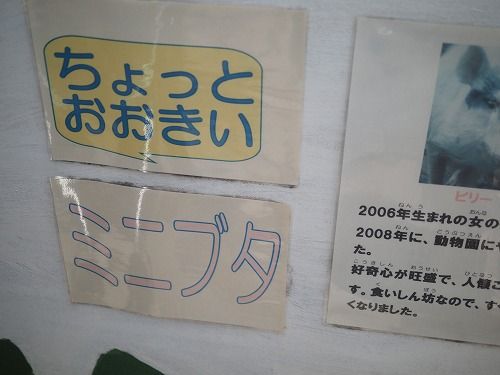 ちょっと
おおきい
ミニブタ
ビリー
2006年生まれの女の
2008年に、動物園にや
た。
好奇心が旺盛で、人懐こ
す。食いしん坊なので、す
くなりました。